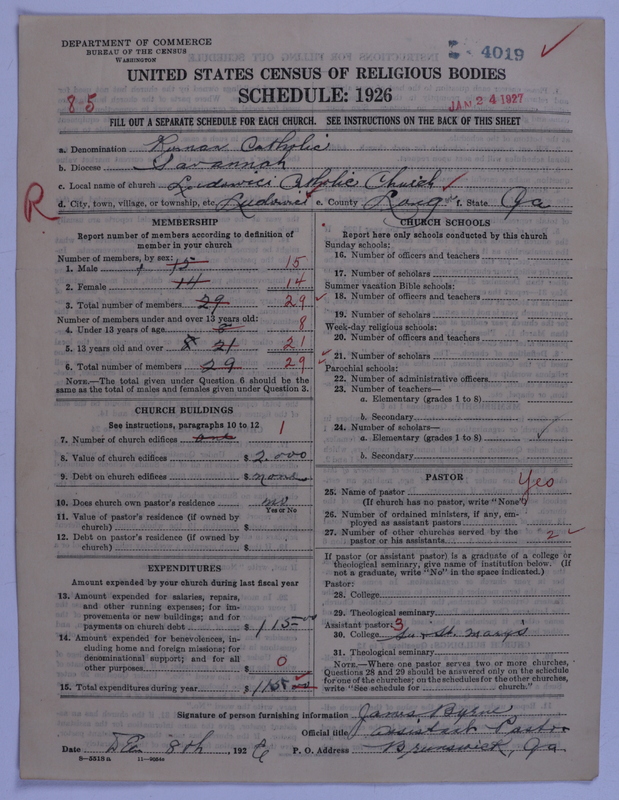 DEPARTMENT OF COMMERCE
BUREAU OF THE CENSUS
WASHINGTON
4019
UNITED STATES CENSUS OF RELIGIOUS BODIES
SCHEDULE: 1926
85
JAN 24 1927
FILL OUT A SEPARATE SCHEDULE FOR EACH CHURCH. SEE INSTRUCTIONS ON THE BACK OF THIS SHEET
a. Denomination Roman Catholic
b. Diocese Savannah
c. Local name of church Ludowici Catholic Church
R d. City, town, village, or township, etc. Ludowici e. County Long f. State Ga
MEMBERSHIP
Report number of members according to definition of
member in your church
Number of members, by sex:
1. Male 15 15
2. Female 14 14
3. Total number of members 29 29
Number of members under and over 13 years old:
4. Under 13 years of age 8
5. 13 years old and over 21 21
6. Total number of members 29 29
NOTE.—The total given under Question 6 should be the
same as the total of males and females given under Question 3.
CHURCH BUILDINGS
See instructions, paragraphs 10 to 12
7. Number of church edifices one 1
8. Value of church edifices $ 2.000
9. Debt on church edifices $ none
10. Does church own pastor's residence no
Yes or No
11. Value of pastor's residence (if owned by
church) $
12. Debt on pastor's residence (if owned by
church) $
EXPENDITURES
Amount expended by your church during last fiscal year
13. Amount expended for salaries, repairs,
and other running expenses; for im-
provements or new buildings; and for
payments on church debt $ 115
14. Amount expended for benevolences, in-
cluding home and foreign missions; for
denominational support; and for all
other purposes $ 0
15. Total expenditures during year $ 115
CHURCH SCHOOLS
Report here only schools conducted by this church
Sunday schools:
16. Number of officers and teachers
17. Number of scholars
Summer vacation Bible schools:
18. Number of officers and teachers
19. Number of scholars
Week-day religious schools:
20. Number of officers and teachers
21. Number of scholars
Parochial schools:
22. Number of administrative officers
23. Number of teachers—
a. Elementary (grades 1 to 8)
b. Secondary
24. Number of scholars—
a. Elementary (grades 1 to 8)
b. Secondary
PASTOR
25. Name of pastor Yes
(If church has no pastor, write "None")
26. Number of ordained ministers, if any, em-
ployed as assistant pastors
27. Number of other churches served by the
pastor or his assistants 2
If pastor (or assistant pastor) is a graduate of a college or
theological seminary, give name of institution below. (If
not a graduate, write "No" in the space indicated.)
Pastor:
28. College
29. Theological seminary
Assistant pastor: 3
30. College St. Mary's
31. Theological seminary
NOTE.—Where one pastor serves two or more churches,
Questions 28 and 29 should be answered only on the schedule
for one of the churches; on the schedules for the other churches,
write "See schedule for church."
Signature of person furnishing information James Byrne
Official title assistant Pastor
Date 8th, 1926 P. O. Address Brunswick, Ga
8—5518 a 11—90844